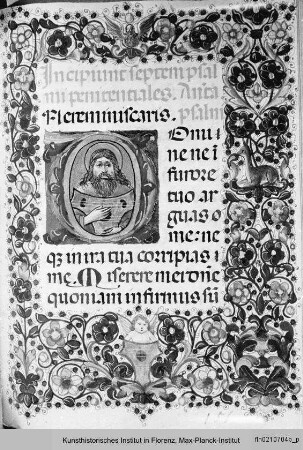 Incipiunt septem psal
mi penitentiales. Anta
Ne reminiscaris. psalm
Domi
ne ne i
furore
tuo ar
guas
me: ne
qȝ in ira tua corripias
me. Miserere mei dn̄e
quoniam infirmus sū
Kunsthistorisches Institut in Florenz, Max-Planck-Institut
fln0210704b_p